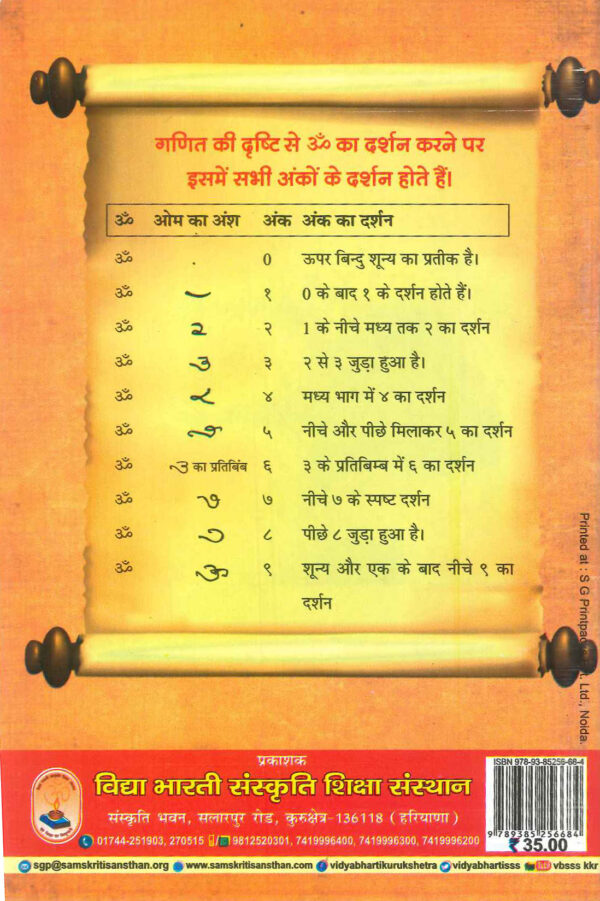 गणित की दृष्टि से ॐ का दर्शन करने पर
इसमें सभी अंकों के दर्शन होते हैं।
ॐ ओम का अंश अंक अंक का दर्शन
ॐ . 0 ऊपर बिन्दु शून्य का प्रतीक है।
ॐ १ १ 0 के बाद १ के दर्शन होते हैं।
ॐ २ २ 1 के नीचे मध्य तक २ का दर्शन
ॐ ३ ३ २ से ३ जुड़ा हुआ है।
ॐ ४ मध्य भाग में ४ का दर्शन
ॐ ५ नीचे और पीछे मिलाकर ५ का दर्शन
ॐ ३ का प्रतिबिंब ६ ३ के प्रतिबिम्ब में ६ का दर्शन
ॐ ७ नीचे ७ के स्पष्ट दर्शन
ॐ ८ पीछे ८ जुड़ा हुआ है।
ॐ ९ शून्य और एक के बाद नीचे ९ का
दर्शन
Printed at : S G Printpac Ltd., Noida.
प्रकाशक
विद्या भारती संस्कृति शिक्षा संस्थान
संस्कृति भवन, सलारपुर रोड, कुरुक्षेत्र-136118 (हरियाणा)
01744-251903, 270515 / 9812520301, 7419996400, 7419996300, 7419996200
sgp@samskritisansthan.org www.samskritisansthan.com vidyabhartikurukshetra vidyabhartisss vbsss kkr
ISBN 978-93-85256-68-4
9 789385 256684
₹ 35.00